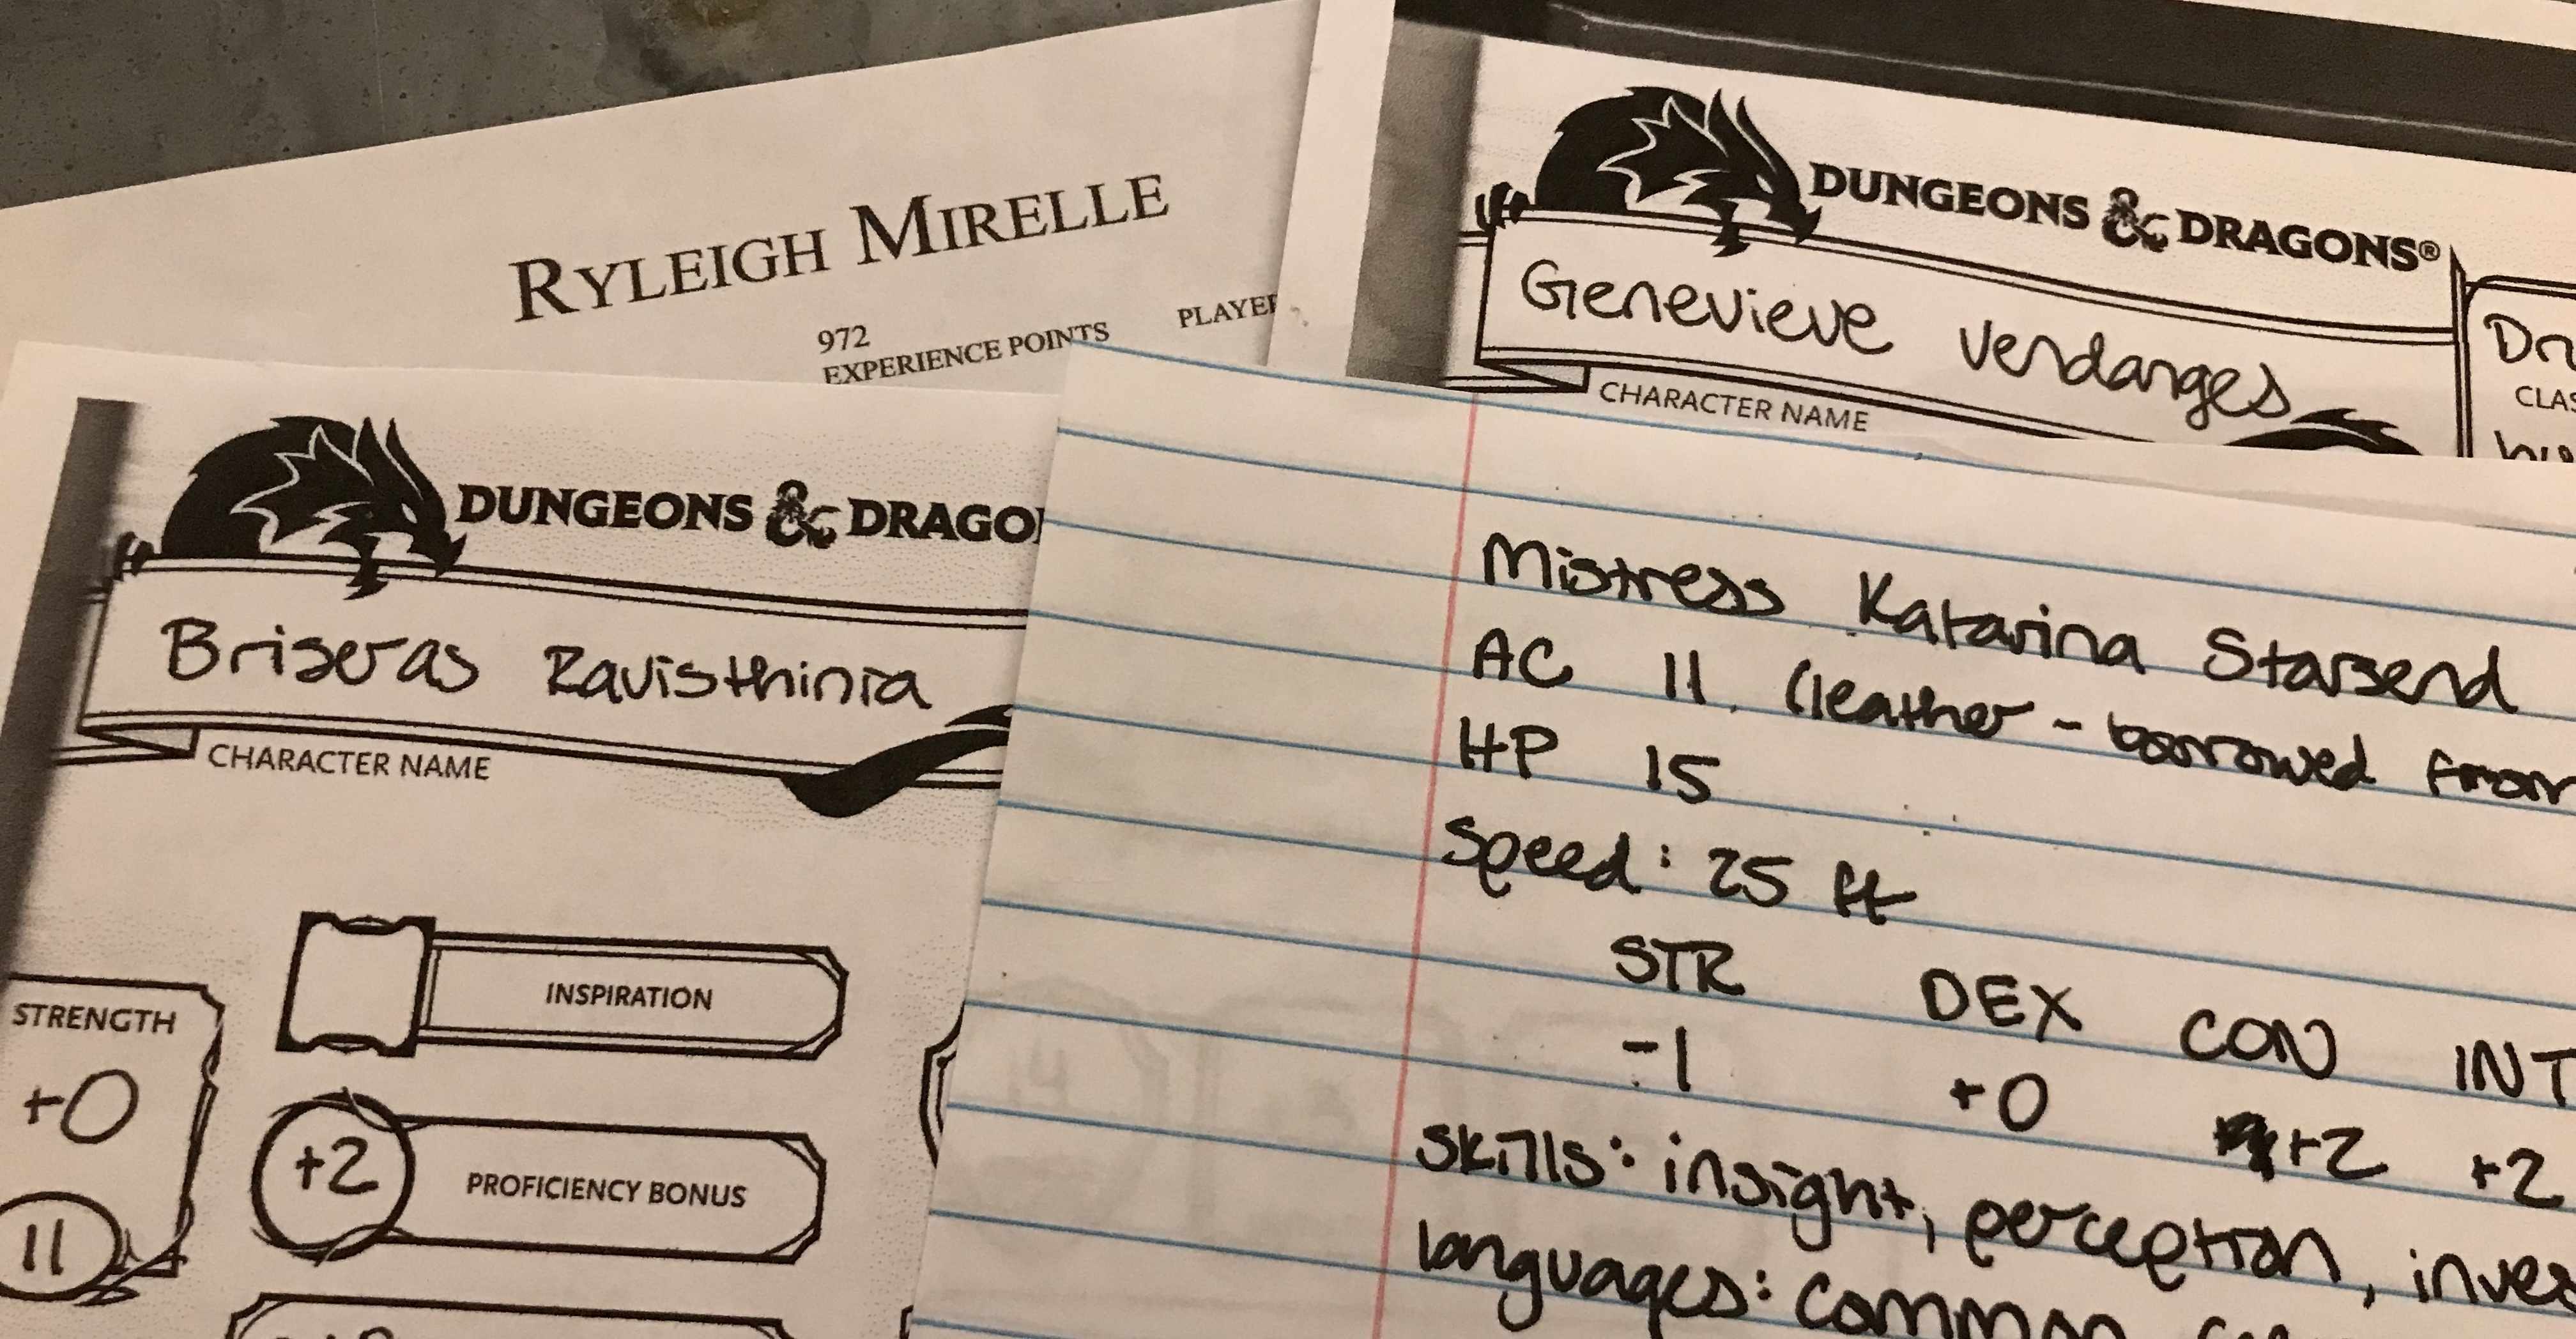 RYLEIGH MIRELLE
972
EXPERIENCE POINTS
PLAYER
DUNGEONS & DRAGONS®
Genevieve Vendanges
CHARACTER NAME
DUNGEONS & DRAGO
Briseras Ravisthinia
CHARACTER NAME
INSPIRATION
STRENGTH
+0
11
+2
PROFICIENCY BONUS
Mistress Katarina Starsend
AC 11 (leather - borrowed from
HP 15
Speed: 25 ft
STR DEX CON INT
-1 +0 +2 +2
skills: insight, perception,
languages: common